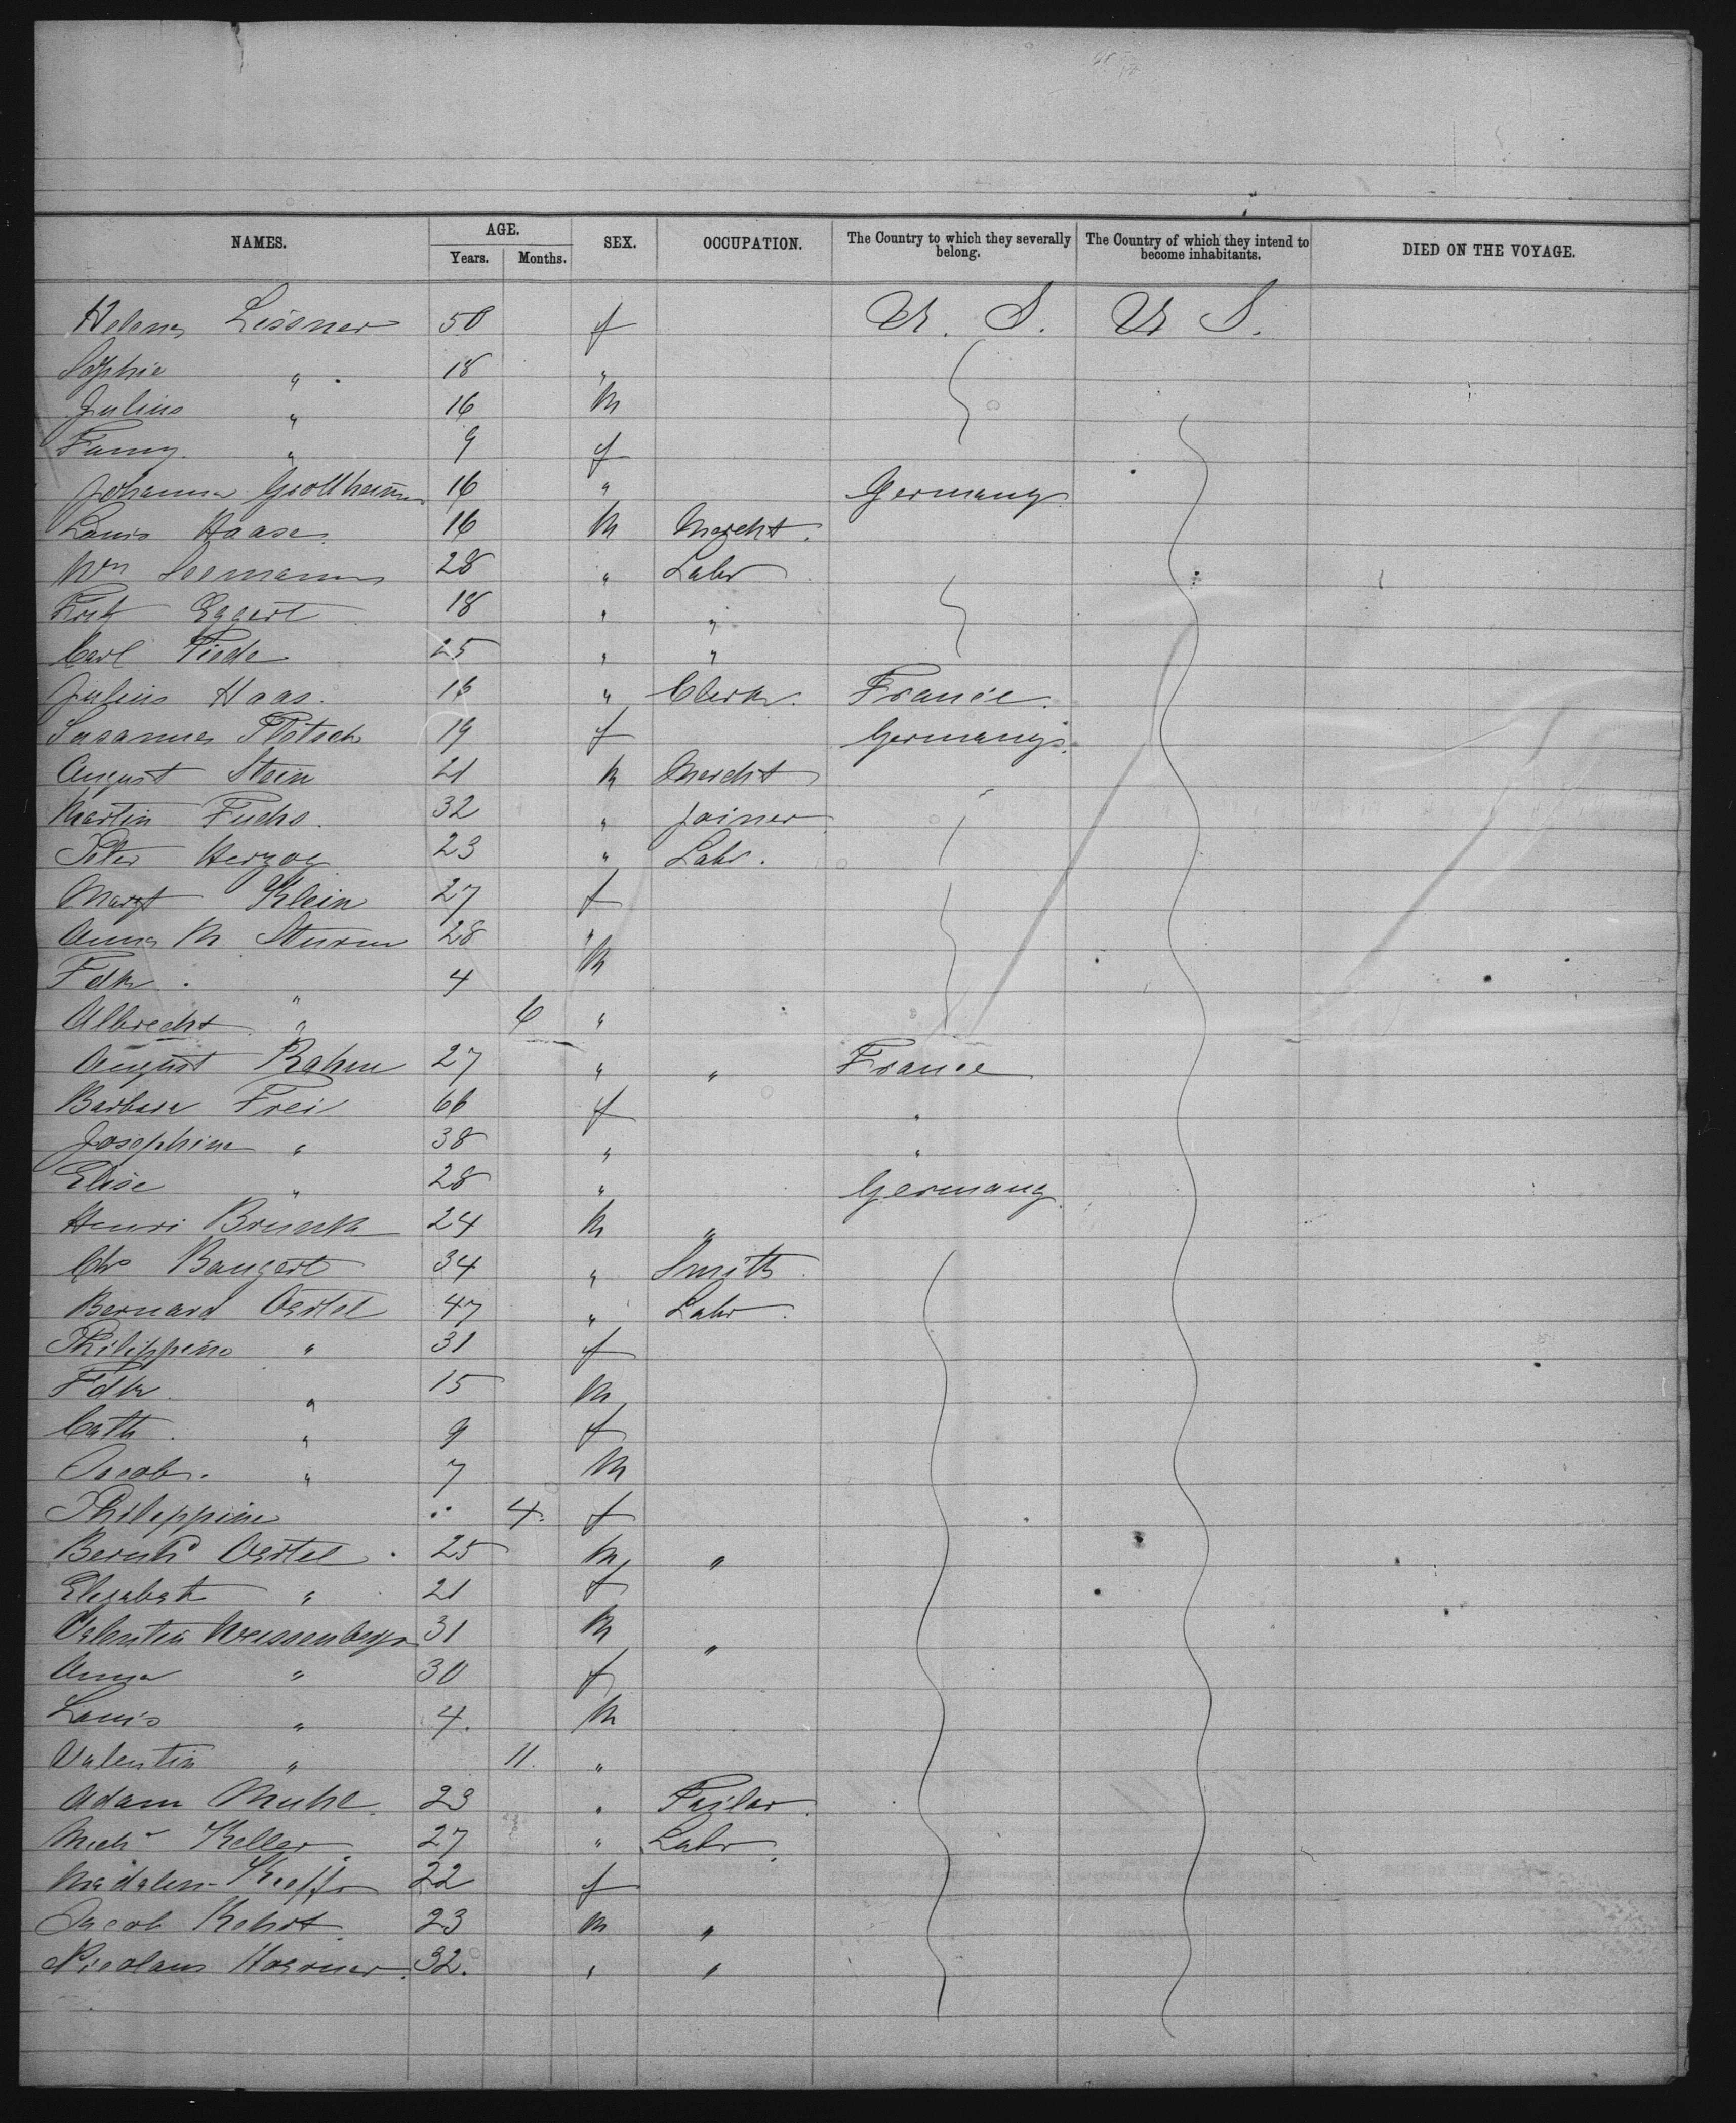 NAMES. AGE. SEX. OCCUPATION. The Country to which they severally belong. The Country of which they intend to become inhabitants. DIED ON THE VOYAGE.
Years. Months.
Helena Lissner 50 f U. S. U S.
Sophie " 18 "
Julius " 16 M
Fanny " 9 f
Johanna 16 " Germany
Louis Haase 16 M Mercht.
Wm Seemann 28 " Labr
Fritz Eggert 18 " "
Carl Tiede 25 " "
Julius Haas. " Clerk. France.
Susanna 19 f Germany.
August Stein 21 M Mercht
Martin Fuchs. 32 " joiner
Peter Herzog 23 " Labr.
Margt Klein 27 f
Anna M. Sturm 28 "
Fdk. " 4 M
Albrecht " 6 "
August Rahm 27 " " France
Barbara Frei 66 f "
Josephine " 38 " "
Elise " 28 " Germany
Henri Brunk 24 M "
Chs Bangert 34 " Smith.
Bernard Oertel 47 " Labr.
Philippine " 31 f
Fdk. " 15 M
Cath. " 9 f
Jacob. " 7 M
Philippine 4. f
Bernhd Oertel. 25 M "
Elisabeth " 21 f
Valentin Weissenberger 31 M "
Anna " 30 f
Louis " 4. M
Valentin " 11. "
Adam Muhl. 23 " Tailor.
Michl Keller. 27 " Labr.
Madalen 22 f
Jacob 23 M "
Nicolaus Hoerner. 32. " "